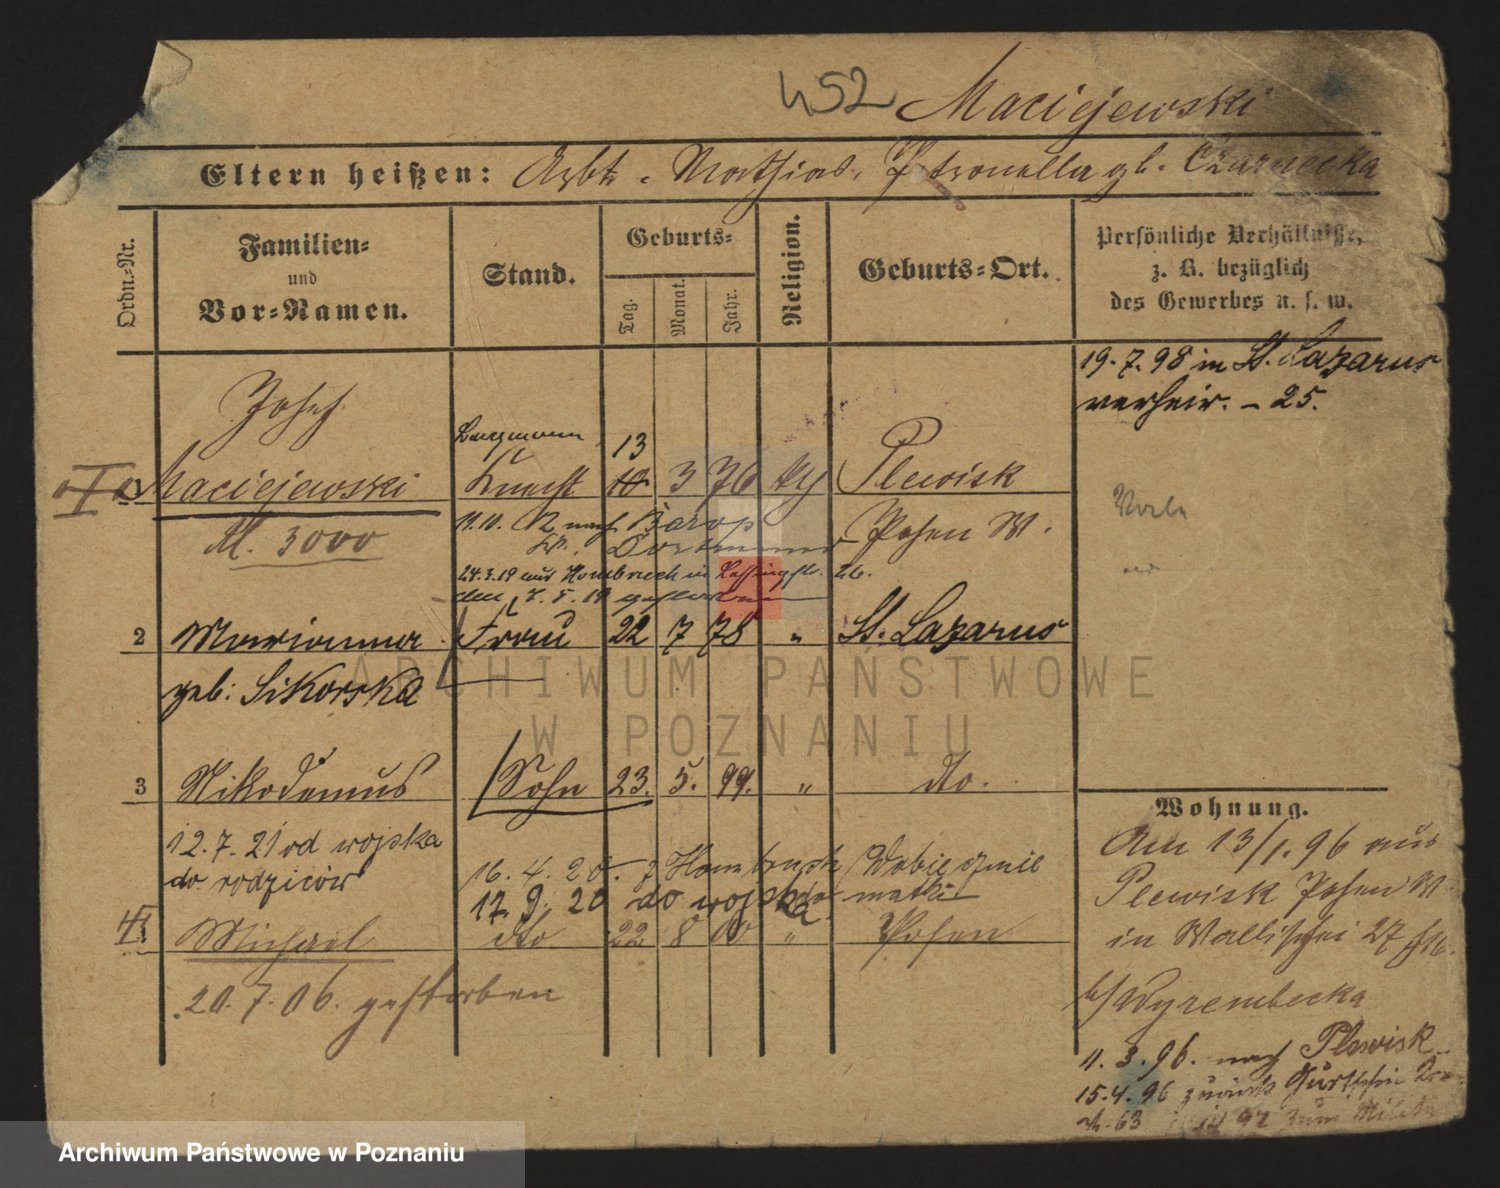 452 Maciejewski
Eltern heißen: Arbt. Mathias, Petronella gb. Czarnecka
Ordn.-Nr.
Familien-
und
Vor-Namen.
Stand.
Geburts-
Tag.
Monat.
Jahr.
Religion.
Geburts-Ort.
Persönliche Verhältnisse,
z. B. bezüglich
des Gewerbes u. s. w.
19.7.98 in St. Lazarus
verheir. – 25.
Josef
Bergmann 13
Maciejewski Knecht 10 3 76 Plewisk
M. 3000
11.10. nach Barop
Dortmund
Posen W.
24.3.19 aus Hombruch in 26.
den 7.5.19 gestorben
2 Marianna Frau 22 7 78 " St. Lazarus
geb: Sikorska
3 Nikodemus Sohn 23. 5. 99. " dto.
12.7.21 od wojska
do rodziców
16.4.20. z Hombruch
17.9.20 do wojska
Michael dto 22 8 00 " Posen
20.7.06. gestorben
Wohnung.
Am 13/1.96 aus
Plewisk Posen W.
in Wallischei 27
b/ Wyrembecka
11.3.96. nach Plewisk
15.4.96 zurück
63 97 zum
ARCHIWUM PAŃSTWOWE
W POZNANIU
Archiwum Państwowe w Poznaniu